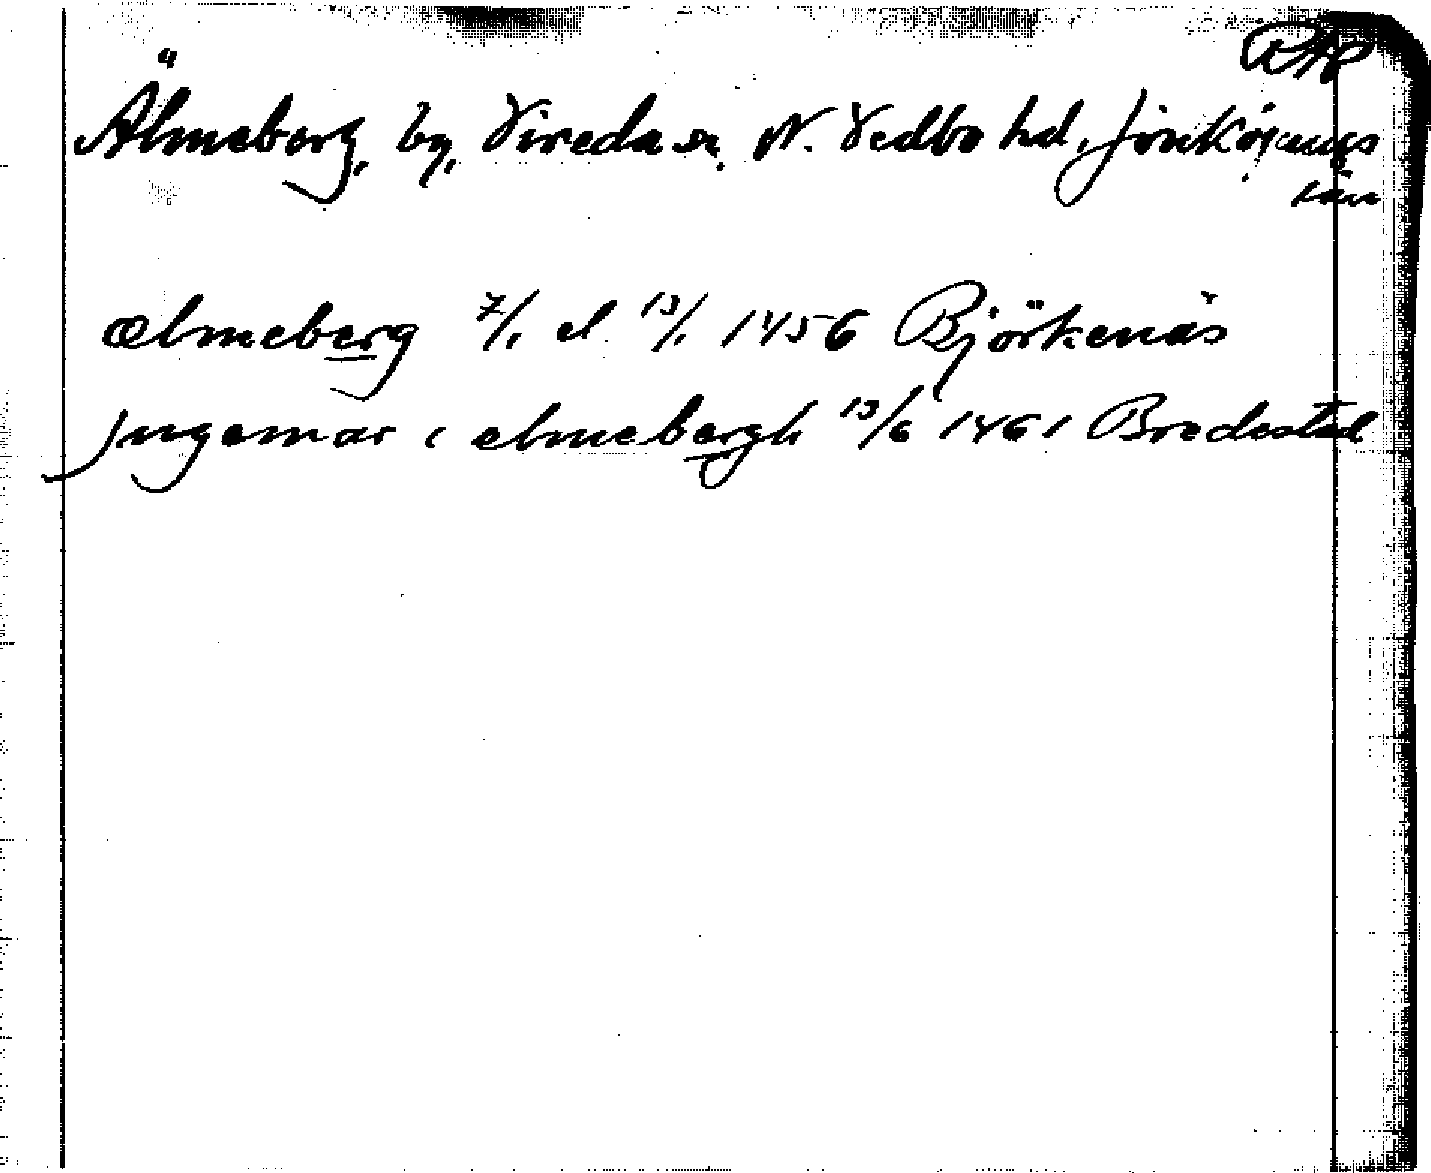 RAP
Älmeberg, by, Vireda sn. N. Vedbo hd, Jönköpings
län
ælmeberg 7/1 el. 13/1 1456 Björkenäs
Jngemar i elmebergh 13/6 1461 Bredestad